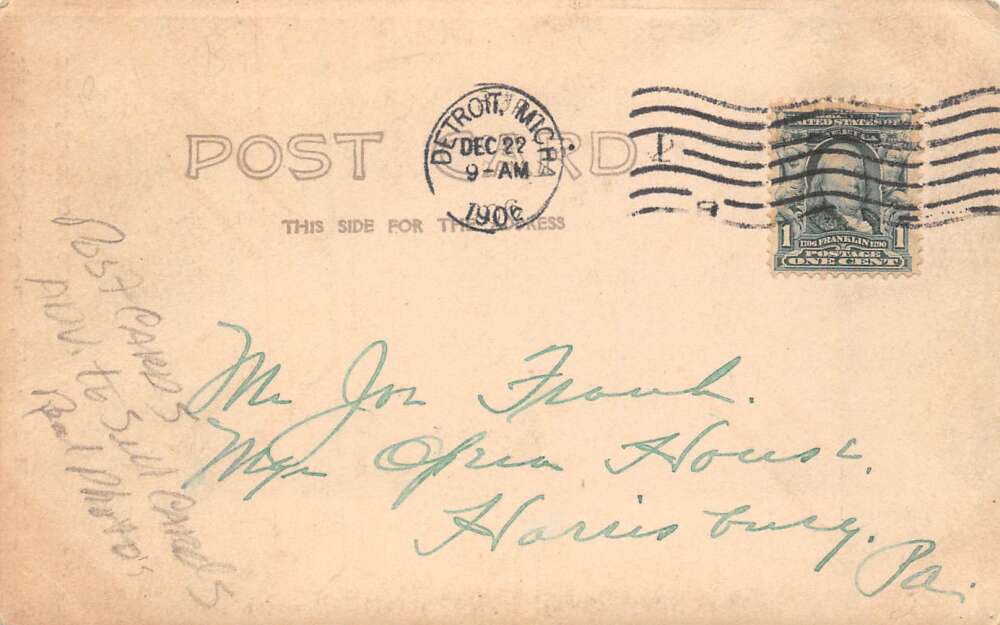 POST CARD
THIS SIDE FOR THE ADDRESS
DETROIT, MICH.
DEC 22
9-AM
1906
UNITED STATES
1 1
1706 FRANKLIN 1790
POSTAGE
ONE CENT
Mr Jos Frank.
Mgr Opera House.
Harrisburg.
Pa.
POST CARDS
Real Photos